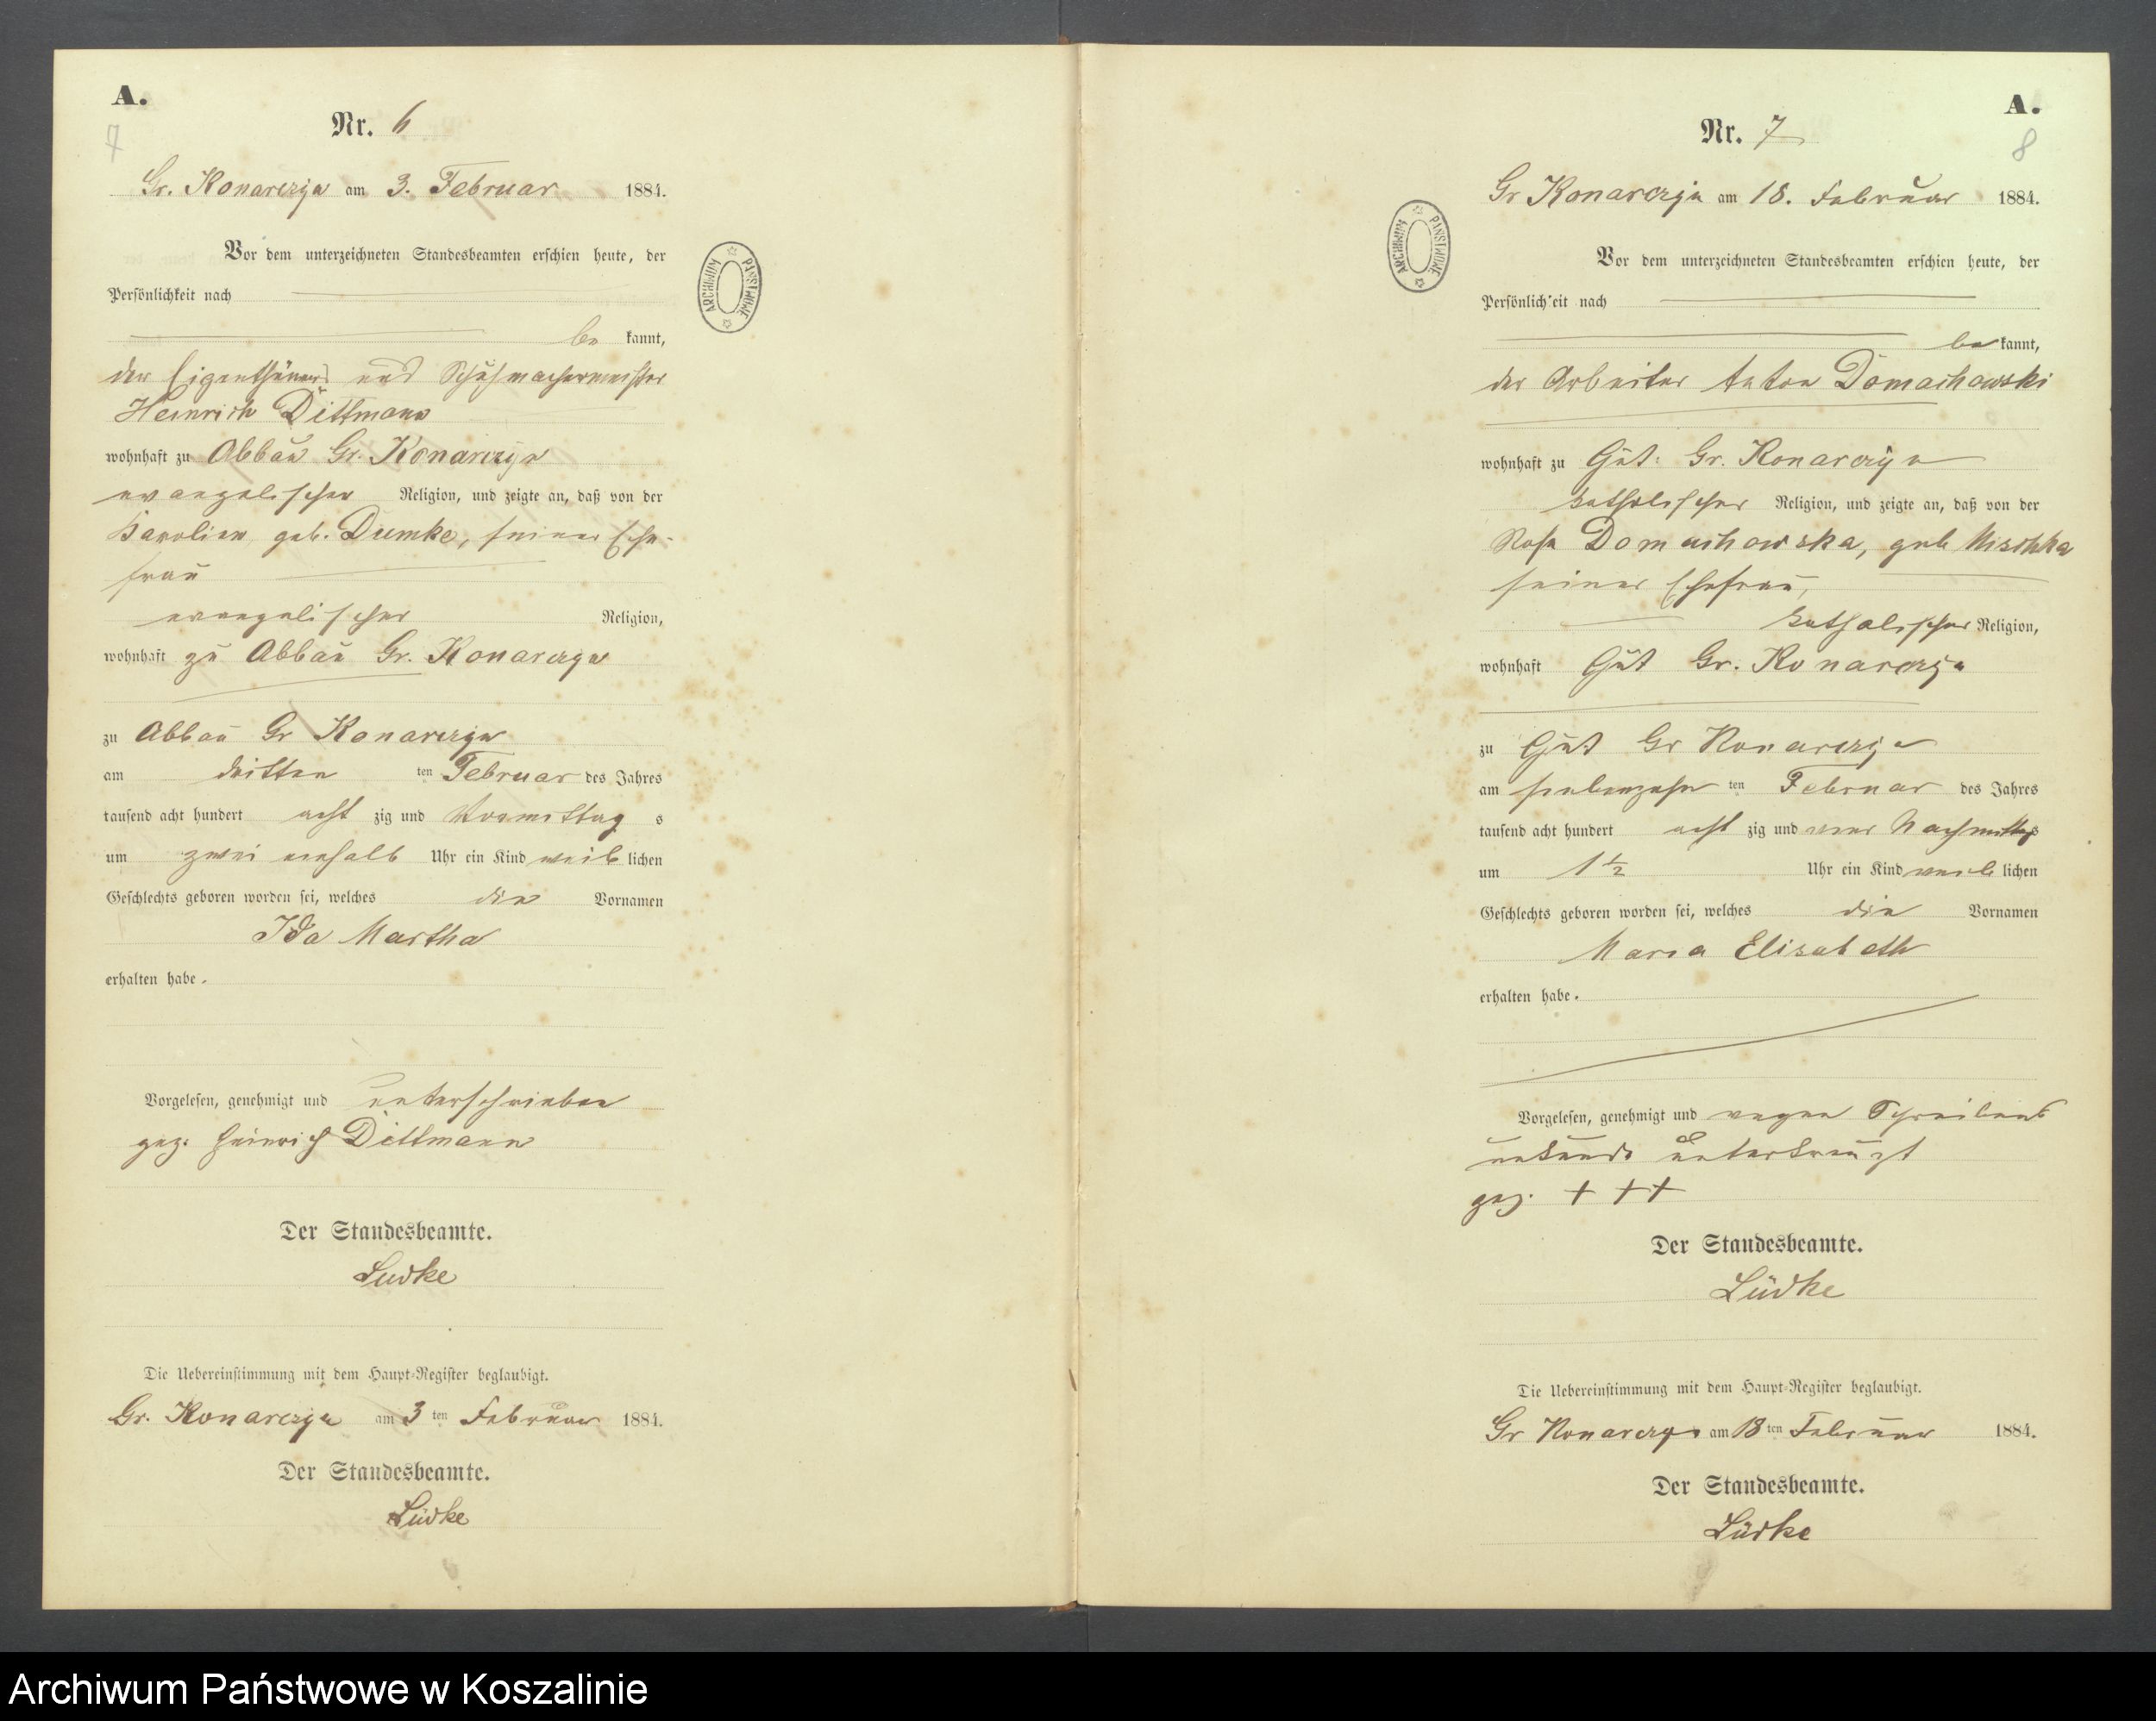 A.
7
Nr. 6
Gr. Konarczyn am 3. Februar 1884.
Vor dem unterzeichneten Standesbeamten erschien heute, der
Persönlichkeit nach
be kannt,
der Eigenthümer und Schuhmachermeister
Heinrich Dittmann
wohnhaft zu Abbau Gr. Konarczyn
evangelischer Religion, und zeigte an, daß von der
Karoline geb. Dumke, seiner Ehe-
frau
evangelischer Religion,
wohnhaft zu Abbau Gr. Konarczyn
zu Abbau Gr Konarczyn
am dritten ten Februar des Jahres
tausend acht hundert acht zig und Vormittag s
um zwei einhalb Uhr ein Kind weib lichen
Geschlechts geboren worden sei, welches die Vornamen
Ida Martha
erhalten habe.
Vorgelesen, genehmigt und unterschrieben
gez. Heinrich Dittmann
Der Standesbeamte.
Lüdke
Die Uebereinstimmung mit dem Haupt-Register beglaubigt.
Gr. Konarczyn am 3 ten Februar 1884.
Der Standesbeamte.
Lüdke
A.
8
Nr. 7
Gr Konarczyn am 18. Februar 1884.
Vor dem unterzeichneten Standesbeamten erschien heute, der
Persönlichkeit nach
be kannt,
der Arbeiter Anton Domachowski
wohnhaft zu Gut Gr. Konarczyn
katholischer Religion, und zeigte an, daß von der
Rosa Domachowska, geb
seiner Ehefrau,
katholischer Religion,
wohnhaft Gut Gr. Konarczyn
zu Gut Gr Konarczyn
am siebenzehn ten Februar des Jahres
tausend acht hundert acht zig und vier Nachmittags
um 1 ½ Uhr ein Kind weib lichen
Geschlechts geboren worden sei, welches die Vornamen
Maria Elisabeth
erhalten habe.
Vorgelesen, genehmigt und wegen Schreibens
unkunde unterkreuzt
gez. + + +
Der Standesbeamte.
Lüdke
Die Uebereinstimmung mit dem Haupt-Register beglaubigt.
Gr Konarczyn am 18 ten Februar 1884.
Der Standesbeamte.
Lüdke
ARCHIWUM PAŃSTWOWE
ARCHIWUM PAŃSTWOWE
Archiwum Państwowe w Koszalinie